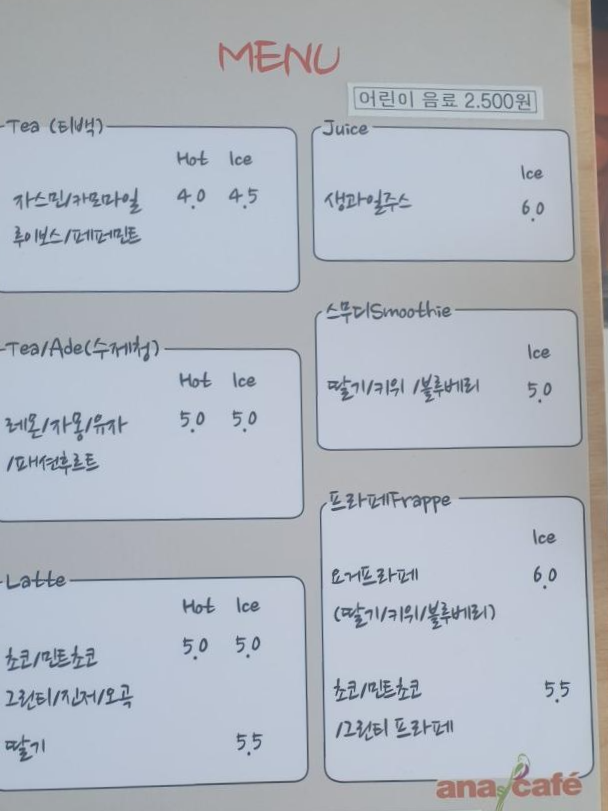 MENU
어린이 음료 2.500원
Tea (티백)
Hot Ice
자스민/카모마일 4.0 4.5
루이보스/페페민트
Tea/Ade(수제청)
Hot Ice
레몬/자몽/유자 5.0 5.0
/패션후르트
Latte
Hot Ice
초코/민트초코 5.0 5.0
그린티/진저/오곡
딸기 5.5
Juice
Ice
생과일주스 6.0
스무디Smoothie
Ice
딸기/키위/블루베리 5.0
프라페Frappe
Ice
요거프라페 6.0
(딸기/키위/블루베리)
초코/민트초코 5.5
/그린티 프라페
anas café